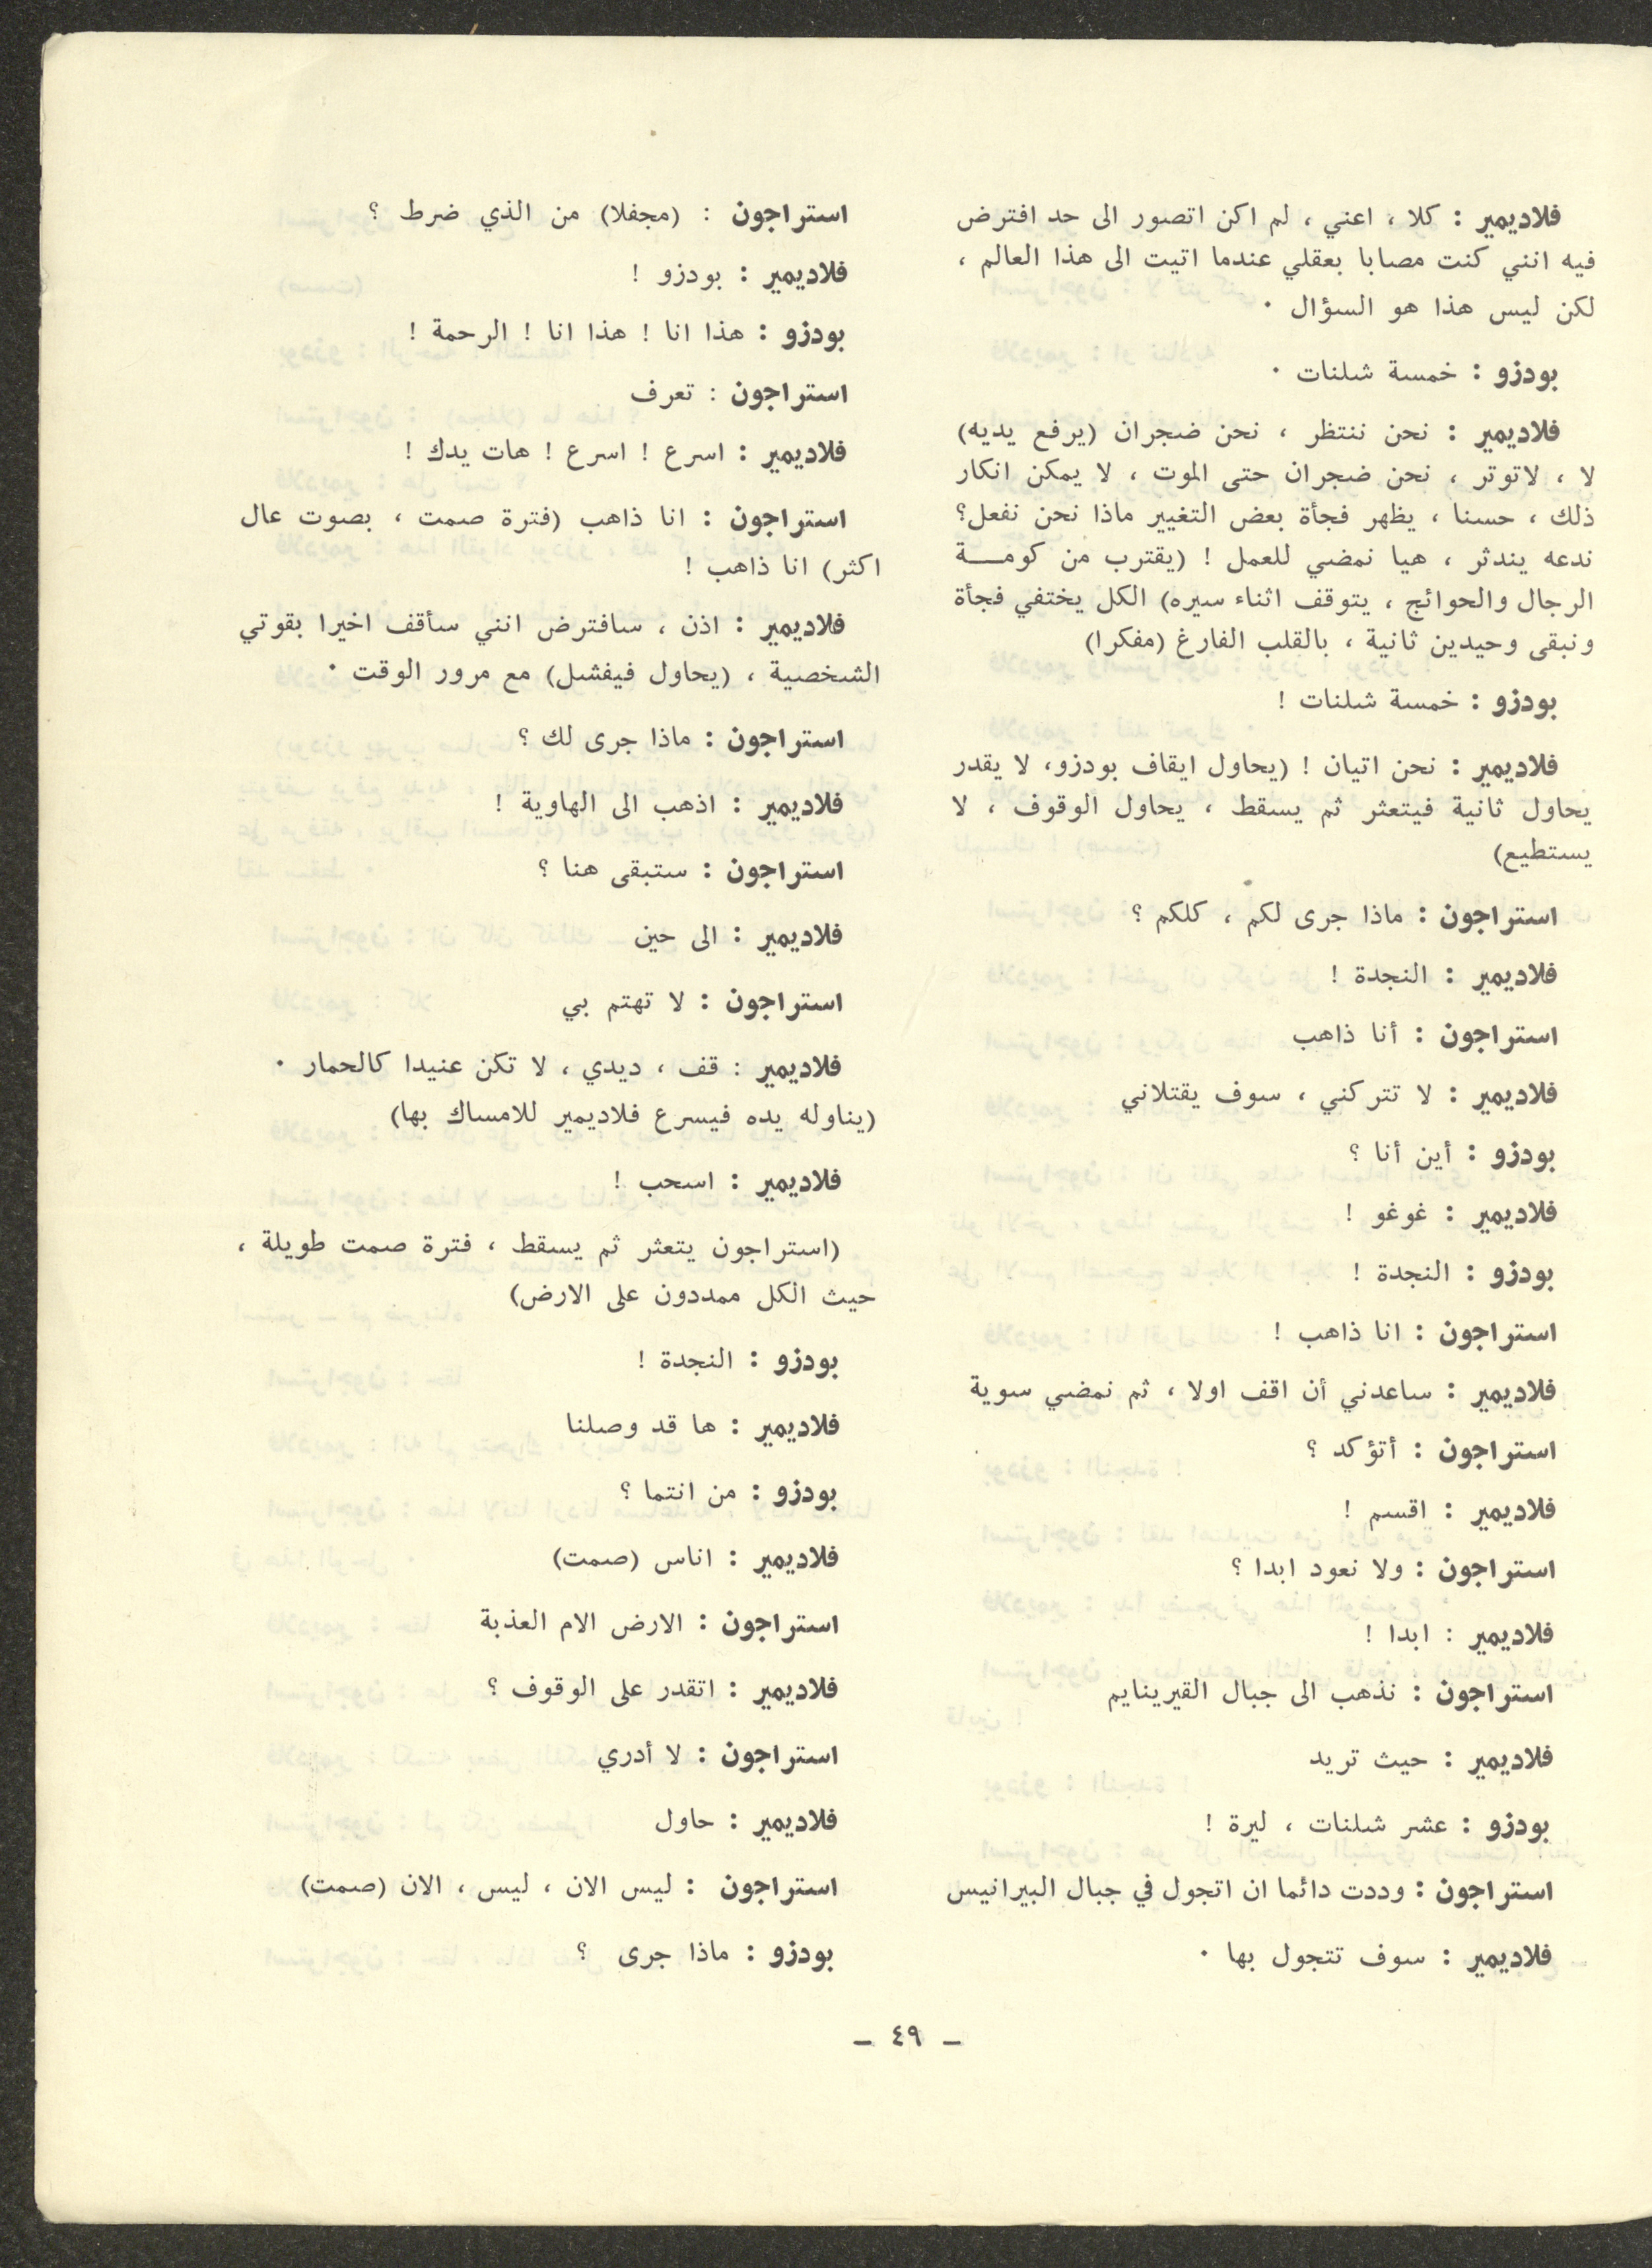 فلاديمير : كلا ، اعني ، لم اكن اتصور الى حد افترض
فيه انني كنت مصابا بعقلي عندما اتيت الى هذا العالم ،
لكن ليس هذا هو السؤال ٠
بودزو : خمسة شلنات ٠
فلاديمير : نحن ننتظر ، نحن ضجران (يرفع يديه)
لا ، لاتوتر ، نحن ضجران حتى الموت ، لا يمكن انكار
ذلك ، حسنا ، يظهر فجأة بعض التغيير ماذا نحن نفعل؟
ندعه يندثر ، هيا نمضي للعمل ! (يقترب من كومـــة
الرجال والحوائج ، يتوقف اثناء سيره) الكل يختفي فجأة
ونبقى وحيدين ثانية ، بالقلب الفارغ (مفكرا)
بودزو : خمسة شلنات !
فلاديمير : نحن اتيان ! (يحاول ايقاف بودزو، لا يقدر
يحاول ثانية فيتعثر ثم يسقط ، يحاول الوقوف ، لا
يستطيع)
استراجون : ماذا جرى لكم ، كلكم ؟
فلاديمير : النجدة !
استراجون : أنا ذاهب
فلاديمير : لا تتركني ، سوف يقتلاني
بودزو : أين أنا ؟
فلاديمير : غوغو !
بودزو : النجدة !
استراجون : انا ذاهب !
فلاديمير : ساعدني أن اقف اولا ، ثم نمضي سوية
استراجون : أتؤكد ؟
فلاديمير : اقسم !
استراجون : ولا نعود ابدا ؟
فلاديمير : ابدا !
استراجون : نذهب الى جبال القيرينايم
فلاديمير : حيث تريد
بودزو : عشر شلنات ، ليرة !
استراجون : وددت دائما ان اتجول في جبال البيرانيس
فلاديمير : سوف تتجول بها ٠
استراجون : (مجفلا) من الذي ضرط ؟
فلاديمير : بودزو !
بودزو : هذا انا ! هذا انا ! الرحمة !
استراجون : تعرف
فلاديمير : اسرع ! اسرع ! هات يدك !
استراجون : انا ذاهب (فترة صمت ، بصوت عال
اكثر) انا ذاهب !
فلاديمير : اذن ، سافترض انني سأقف اخيرا بقوتي
الشخصية ، (يحاول فيفشل) مع مرور الوقت ٠
استراجون : ماذا جرى لك ؟
فلاديمير : اذهب الى الهاوية !
استراجون : ستبقى هنا ؟
فلاديمير : الى حين
استراجون : لا تهتم بي
فلاديمير : قف ، ديدي ، لا تكن عنيدا كالحمار ٠
(يناوله يده فيسرع فلاديمير للامساك بها)
فلاديمير : اسحب !
(استراجون يتعثر ثم يسقط ، فترة صمت طويلة ،
حيث الكل ممددون على الارض)
بودزو : النجدة !
فلاديمير : ها قد وصلنا
بودزو : من انتما ؟
فلاديمير : اناس (صمت)
استراجون : الارض الام العذبة
فلاديمير : اتقدر على الوقوف ؟
استراجون : لا أدري
فلاديمير : حاول
استراجون : ليس الان ، ليس ، الان (صمت)
بودزو : ماذا جرى ؟
– ٤٩ –